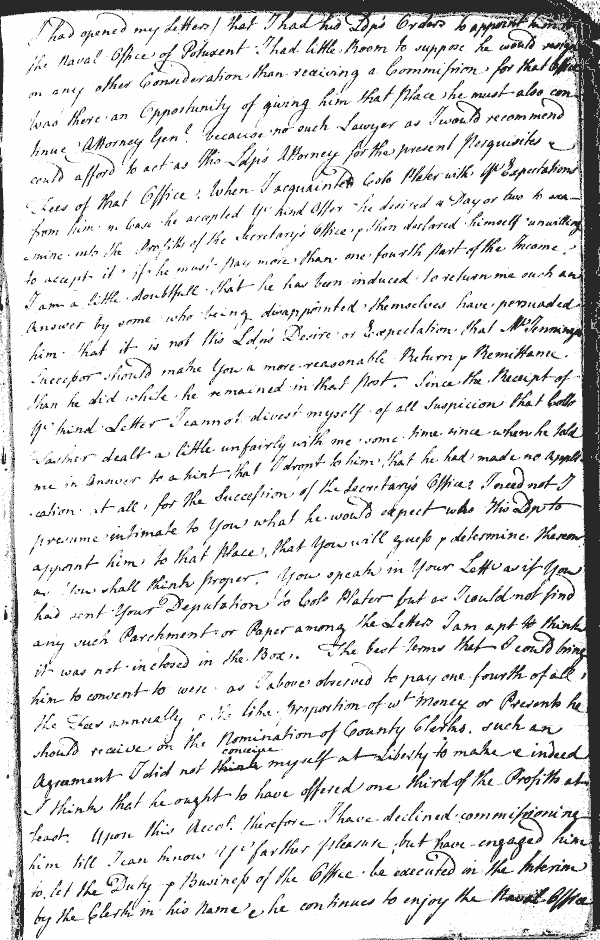 I had opened my Letters) that I had his Ldps Orders to appoint him to
the Naval Office of Potuxent I had little Room to suppose he would resign
on any other Consideration than receiving a Commission for that Office
was there an Opportunity of giving him that Place, he must also con-
tinue Attorney Genl. because no such Lawyer as I would recommend
could afford to act as His Ldps Attorney for the present Perquisites &
Fees of that Office. When I acquainted Colo Plater with Yr Expectations
from him in Case he accepted Yr kind Offer he desired a Day or two to exa-
-mine into the Profitts of the Secretary's Office, & then declared himself unwilling
to accept it if he must pay more than one fourth part of the Income.
I am a little doubtfull that he has been induced to return me such an
Answer by some who being disappointed themselves have persuaded
him that it is not His Ldps Desire or Expectation that Mr Jennings
Successor should make You a more reasonable Return & Remittance
than he did while he remained in that Post. Since the Receipt of
Yr kind Letter I cannot divest myself of all Suspicion that Colo
Tasker dealt a little unfairly with me some time since when he told
me in Answer to a hint that I dropt to him, that he had made no Appli-
-cation at all for the Succession of the Secretary's Office: I need not I
presume intimate to You what he would expect was His Ldp to
appoint him to that Place, that You will guess & determine thereon
as You shall think proper. You speak in Your Letter as if You
had sent Your Deputation to Colo Plater but as I could not find
any such Parchment or Paper among the Letters I am apt to think
it was not inclosed in the Box. The best terms that I could bring
him to consent to were as I above observed to pay one fourth of all
the Fees annually & the like Proportion of wt Money or Presents he
should receive on the Nomination of County Clerks. such an
Agreement I did not think conceive myself at Liberty to make & indeed
I think that he ought to have offered one third of the Profitts at
least. Upon this Acct. therefore I have declined commissioning
him till I can know Yr farther pleasure, but have engaged him
to let the Duty & Business of the Office be executed in the Interim
by the Clerk in his Name & he continues to enjoy the Naval Office